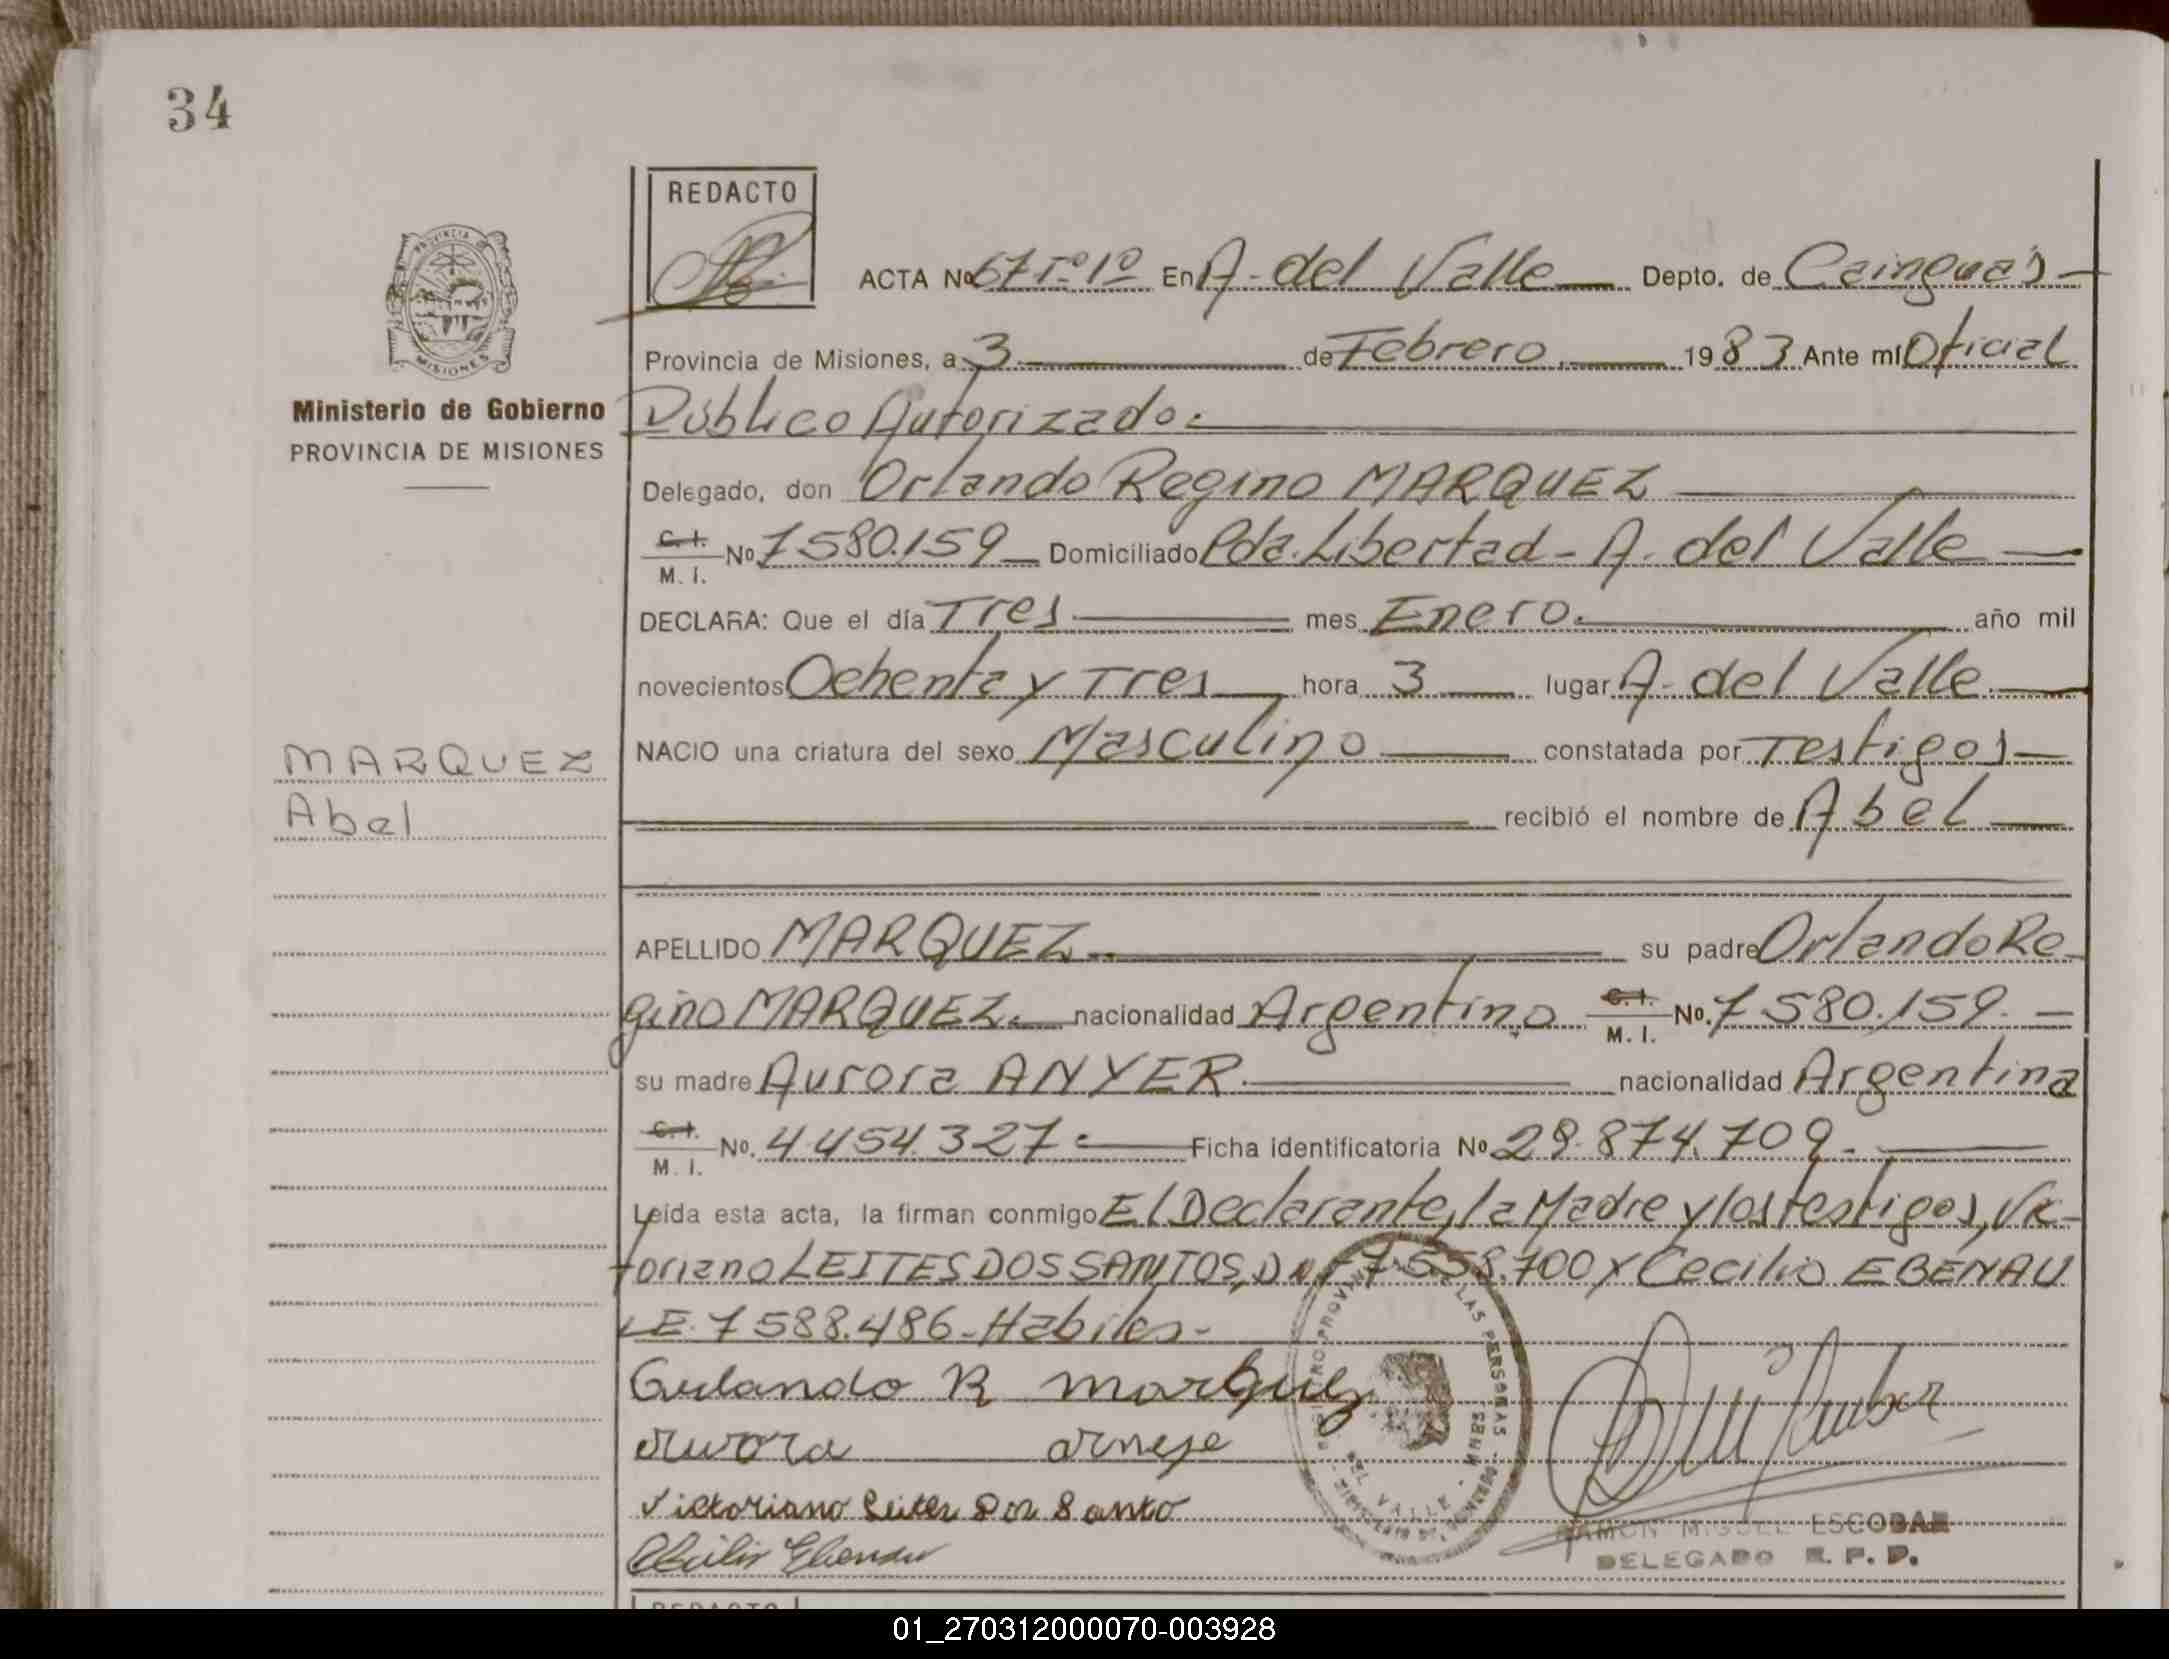 34
REDACTO
PROVINCIA DE
MISIONES
Ministerio de Gobierno
PROVINCIA DE MISIONES
ACTA Nº 67 Tº 1º En A. del Valle Depto. de Cainguás
Provincia de Misiones, a 3 de Febrero 1983 Ante mí Oficial
Público Autorizado.
Delegado, don Orlando Regino MARQUEZ
C. I. M. I. Nº 7580.159 Domiciliado Pda. Libertad - A. del Valle
DECLARA: Que el día Tres mes Enero. año mil
novecientos Ochenta y Tres hora 3 lugar A. del Valle
NACIO una criatura del sexo Masculino constatada por Testigos
MARQUEZ
Abel
recibió el nombre de Abel
APELLIDO MARQUEZ. su padre Orlando Re-
gino MARQUEZ. nacionalidad Argentino C. I. M. I. Nº. 7580.159.
su madre Aurora ANYER. nacionalidad Argentina
C. I. M. I. Nº. 4.454.327. Ficha identificatoria Nº 29.874.709.
Leída esta acta, la firman conmigo El Declarante, la Madre y los testigos, Vic-
toriano LEITES DOS SANTOS, DNI 7.558.700 y Cecilio EBENAU
LE. 7588.486 - Habiles -
Orlando R Marquez
Aurora
Victoriano Leites Dos Santo
Ebenau
LAS PERSONAS
DEL VALLE - MNES
RAMON MIGUEL ESCOBAR
DELEGADO R. P. P.
REDACTO
01_270312000070-003928